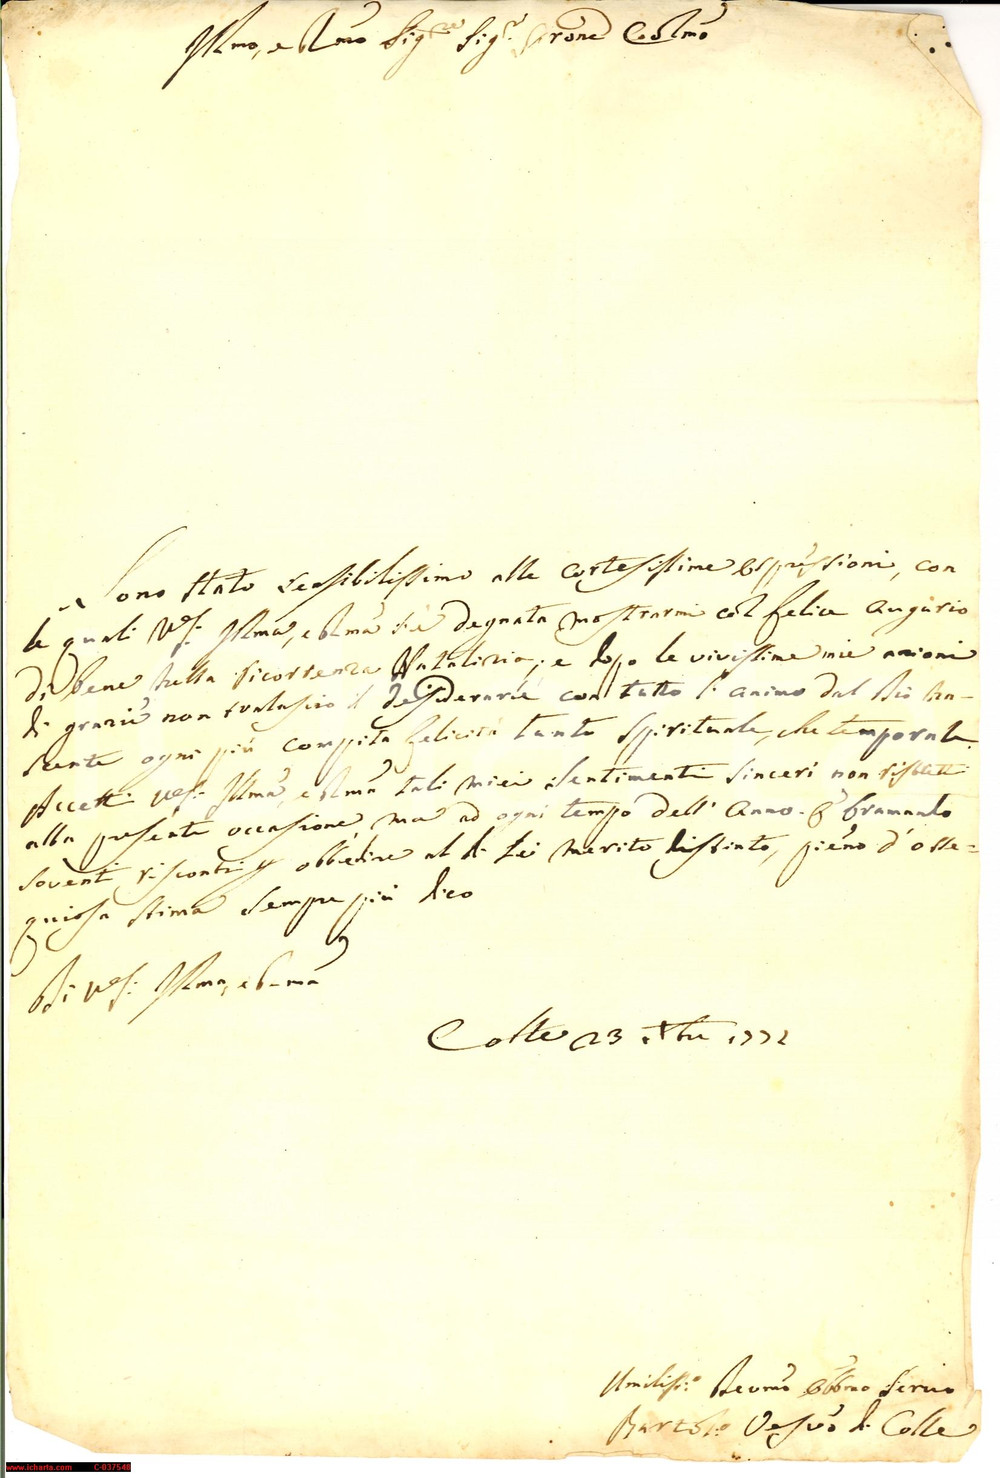 Illmo, e Rmo Sig.re Sig.r Prone Colmo
Sono stato sensibilissimo alle cortesissime espressioni, con
le quali VS: Illma, e Rma si è degnata mostrarmi col felice augurio
di bene nella ricorrenza Natalizia; e dopo le vivissime mie azioni
di grazie non tralascio il desiderarle con tutto l'animo dal Dio Na-
scente ogni più compita felicità tanto spirituale, che temporale.
Accetti VS: Illma, e Rma tali miei sentimenti sinceri non ristretti
alla presente occasione, ma ad ogni tempo dell'Anno. E bramando
soventi riscontri p obbedire al di Lei merito distinto, pieno d'osse=
quiosa stima sempre più dico
Di VS: Illma, e Rma
Colle 23 Xbre 1772
Umiliss:o Devmo Obbmo Servio
Bartolo: Vescvo di Colle
www.icharta.com C-037548